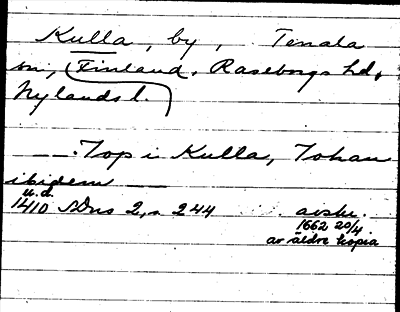 Kulla, by, Tenala
sn, (Finland, Raseborgs hd,
Nylands l.)
__. Jop i Kulla, Johan
ibidem __
u.d.
1410 SDns 2, s 244 avskr.
1662 20/4
av äldre kopia